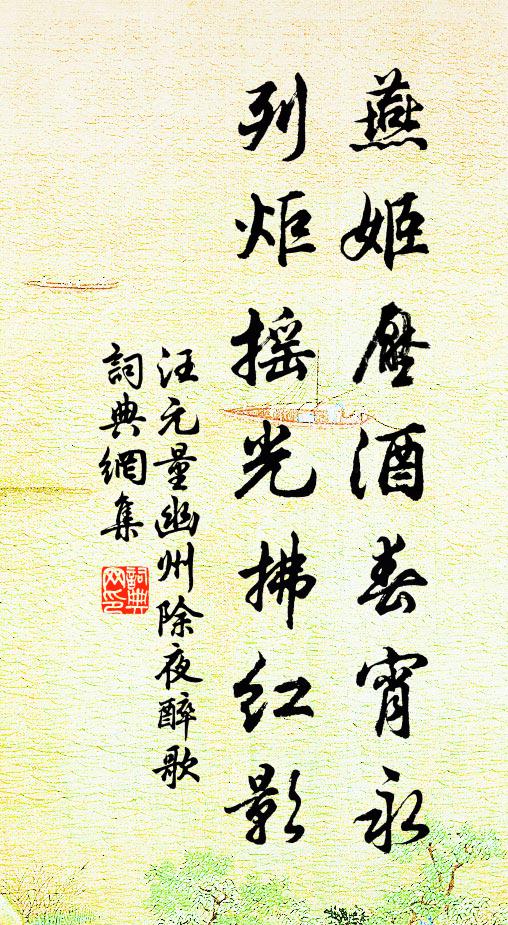 燕姬壓酒春宵永
列炬搖光拂紅影
汪元量幽州除夜醉歌
詞典網集
詞典
网印